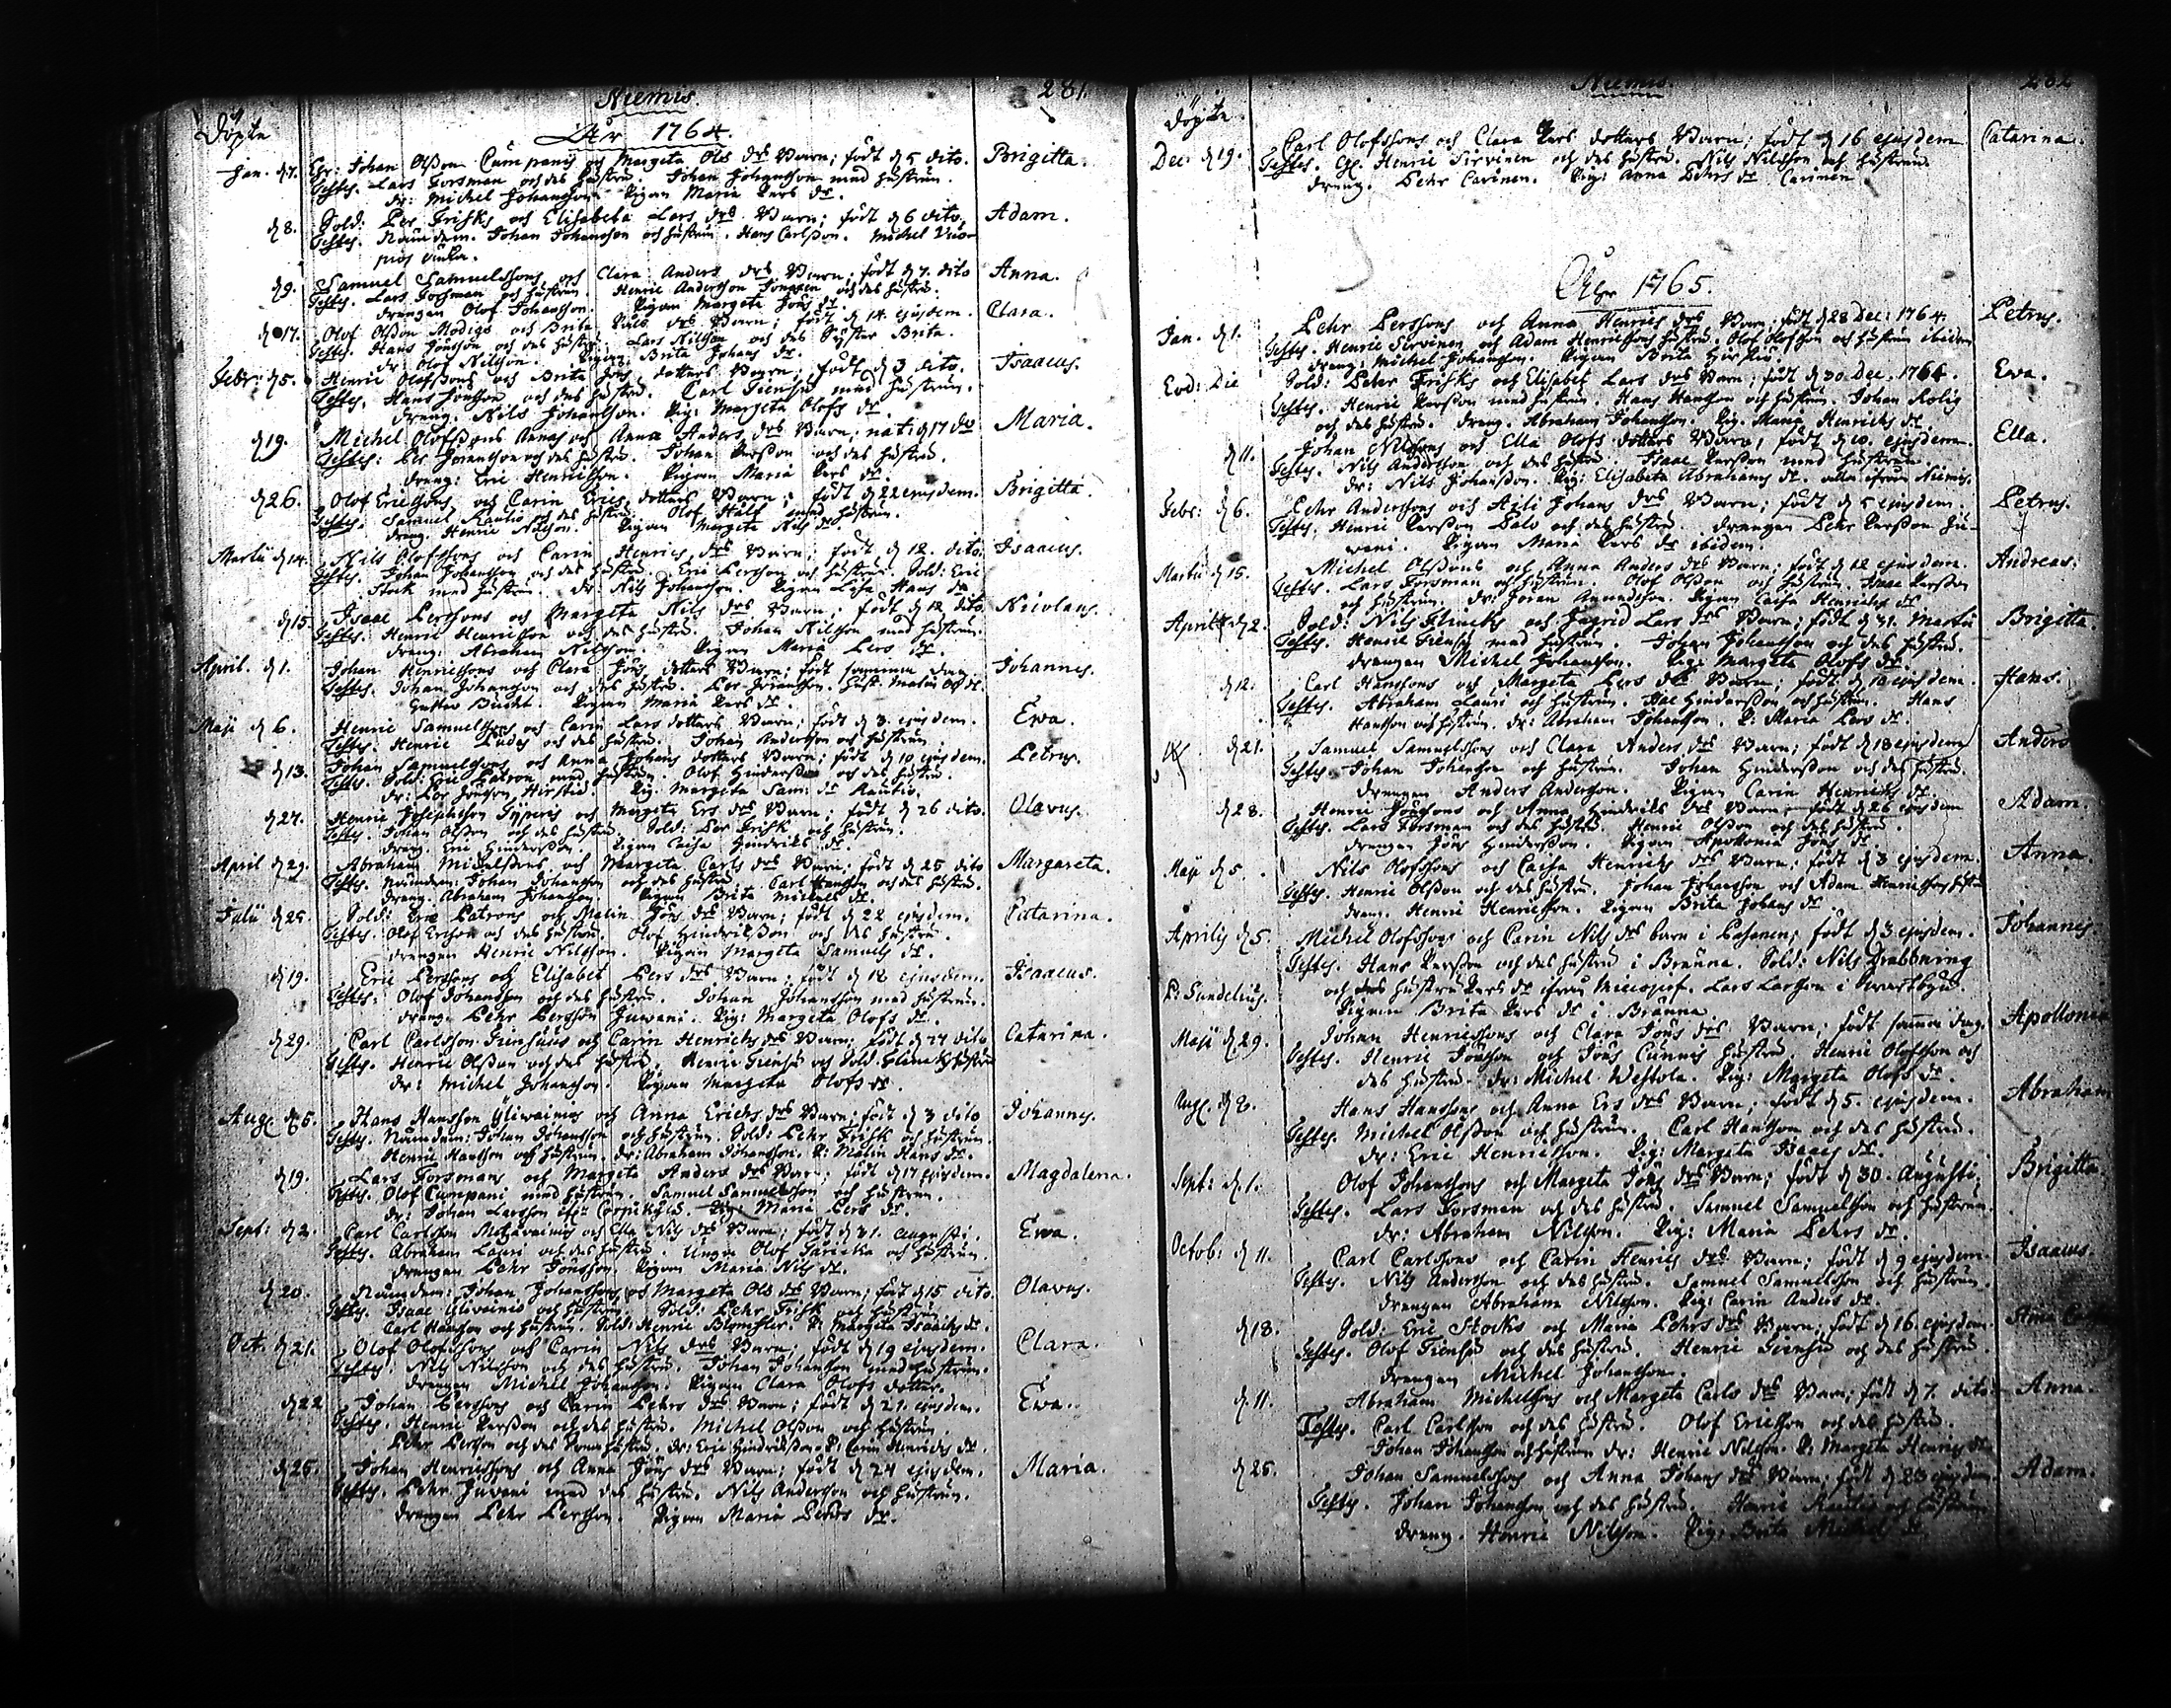 Niemis. 281.
Döpte
År 1764.
Jan. d 7. Johan Olßon Cumpanis och Margeta Ols drs Barn; födt d 5 dito. Brigitta.
Testes. Lars Forsman och des hustru. Johan Johansson med hustrun.
dr: Michel Johansson. Pigan Maria Pers dr.
d 8. Sold: Per Frisks och Elisabeta Lars drs Barn; födt d 6 dito. Adam.
Testes. Nämdem. Johan Johansson och hustru. Hans Carlsson. Michel
d 9. Samuel Samuelssons och Clara Anders drs Barn; födt d 7. dito Anna.
Testes. Lars Forsman och hustrun. Henric Andersson och des hustru.
drengen Olof Johansson. Pigan Margeta Jöns dr.
d 17. Olof Olsson Modigs och Brita Nils drs Barn; födt d 14. ejusdem. Clara.
Testes. Hans Jönsson och des hustru. Lars Nilsson och des Syster Brita.
dr: Olof Nilsson. Pigan Brita Johans dr.
Febr: d 5. Henric Olofssons och Brita Jöns dotters Barn; födt d 3 dito. Isaacus.
Testes. Hans Jonsson och des hustru. Carl Tiensu med hustrun.
dreng. Nils Johansson. Pig: Margeta Olofs dr.
d 19. Michel Olofssons och Anna Anders drs Barn; nat: d 17 do Maria.
Testes: Per Joransson och des hustru. Johan Persson och des hustru.
dreng: Eric Henricsson. Pigan Maria Pers dr.
d 26. Olof Ericssons och Carin Erics dotters Barn; födt d 22 ejusdem. Brigitta.
Testes. Samuel Rautio och des hustru. Olof Hält med hustrun.
dreng. Henric Nilsson. Pigan Margeta Nils dr.
Martii d 14. Nils Olofssons och Carin Henrics drs Barn; födt d 12. dito. Isaacus.
Testes. Johan Johansson och des hustru. Eric Persson och hustrun. Sold: Eric
Stock med hustrun. dr. Nils Johansson. Pigan Hans dr
d 15. Isaac Perssons och Margeta Nils drs Barn; födt d 12 dito Nicolaus.
Testes. Henric Henricsson och des hustru. Johan Nilsson med hustrun.
dreng: Abraham Nilsson. Pigan Maria Pers dr.
April. d 1. Johan Henricssons och Clara Jöns dotters Barn; födt samma dag Johannes.
Testes. Johan Johansson och des hustru. Per Joransson.
Gustav Pigan Maria Pers dr.
Maji d 6. Henric Samuelssons och Carin Lars dotters Barn; födt d 3. ejusdem. Ewa.
Testes. Henric och des hustru. Johan Andersson och hustrun
d 13. Johan Samuelssons och Anna Johans dotters Barn; födt d 10 ejusdem. Petrus.
Testes. Sold: Eric Patron med hustrun. Olof Hindersson och des hustru.
dr: Per Jonsson Hirstiö. Pig. Margeta Sam: dr Rautio.
d 27. Henric Josephsson och Margeta Ers drs Barn; födt d 26 dito. Olavus.
Testes. Johan Olsson och des hustru. Sold: Per Frisk och hustrun.
dreng. Eric Hindersson. Pigan Caisa Hindriks dr.
April d 29. Abraham Michelssons och Margeta Carls drs Barn. födt d 25 dito Margareta.
Testes. Nämdem: Johan Johansson och des hustru. Carl Hansson och des hustru.
dreng. Abraham Johansson. Pigan Brita Michels dr.
Julii d 25. Sold: Eric Patrons och Malin Jöns drs Barn; födt d 22 ejusdem. Catarina.
Testes. Olof Ersson och des hustru. Olof Hindriksson och des hustru.
drengen Henric Nilsson. Pigan Margeta Samuels dr.
d 19. Eric Perssons och Elisabet Pers drs Barn; födt d 18 ejusdem. Isaacus.
Testes. Olof Johansson och des hustru. Johan Johansson med hustrun.
dreng. Pehr Persson Juwani. Pig: Margeta Olofs dr.
d 29. Carl Carlsson och Carin Henrichs drs Barn; födt d 27 dito Catarina.
Testes. Henric Olsson och des hustru. Henric Tiensu och Sold. hustru
dr: Michel Johansson. Pigan Margeta Olofs dr.
Aug. d 5. Hans Hansson Yliwainios och Anna Erichs drs Barn; födt d 3 dito Johannes.
Testes. Nämdem: Johan Johansson och hustrun. Sold: Pehr Frisk och hustrun.
Henric Hansson och hustrun. dr: Abraham Johansson. P: Malin Hans dr.
d 19. Lars Forsmans och Margeta Anders drs Barn; födt d 17 ejusdem. Magdalena.
Testes. Olof Cumpani med hustrun. Samuel Samuelsson och hustrun.
dr: Johan Larsson Pig: Maria Pers dr.
Sept: d 2. Carl Carlsson och Ella Nils drs Barn; födt d 31. augusti. Ewa.
Testes. Abraham Lauri och des hustru. Unge Olof och hustrun.
drengen Pehr Jönsson. Pigan Maria Nils dr.
d 20. Nämdem: Johan Johanssons och Margeta Ols drs Barn; födt d 15 dito. Olavus.
Testes. Isaac Yliwainio och hustrun. Sold: Pehr Frisk och hustrun.
Carl Hansson och hustrun. Sold: Henric P: Margeta Isaacs dr.
Oct. d 21. Olof Olofssons och Carin Nils drs Barn; födt d 19 ejusdem. Clara.
Testes. Nils Nilsson och des hustru. Johan Johansson med hustrun.
drengen Michel Johansson. Pigan Clara Olofs dotter.
d 22 Johan Perssons och Carin Pehrs drs Barn; födt d 21. ejusdem. Ewa.
Testes. Henric Persson och des hustru. Michel Olsson och hustrun.
Pehr Persson och des hustru. dr: Eric Hindriksson. P: Carin Henrichs dr.
d 26. Johan Henricssons och Anna Jöns drs Barn; födt d 24 ejusdem. Maria.
Testes. Pehr Juwani med des hustru. Nils Andersson och hustrun.
drengen Pehr Persson. Pigan Maria Pehrs dr.
Niemis. 282
Döpte.
Dec. d 19. Carl Olofssons och Clara Pers dotters Barn; födt d 16 ejusdem Catarina.
Testes. Henric Sirvinen och des hustru. Nils Nilsson och hustrun.
dreng. Pehr Carinen. Pig: Anna Pehrs dr Carinen
Åhr 1765.
Jan. d 1. Pehr Perssons och Anna Henrics drs Barn; födt d 28 Dec: 1764. Petrus.
Testes. Henric Sirvinen och Adam Henricssons hustru. Olof Olofsson och hustrun ibidem
dreng. Michel Johansson. Pigan Brita
Eod: Die Sold: Pehr Frisks och Elisabet Lars drs Barn; födt d 30 Dec. 1764. Ewa.
Testes. Henric Persson med hustrun. Hans Hansson och hustrun. Johan Rolig
och des hustru. dreng. Abraham Johansson. Pig. Maria Henrichs dr.
d 11. Johan Nilssons och Ella Olofs dotters Barn; födt d 10. ejusdem. Ella.
Testes. Nils Andersson och des hustru. Isaac Persson med hustrun.
dr: Nils Johansson. Pig: Elisabeta Abrahams dr. alla ifrån Niemis.
Febr: d 6. Pehr Anderssons och Johans drs Barn; födt d 5 ejusdem. Petrus.
Testes. Henric Persson och des hustru. drengen Pehr Persson Ju-
wani. Pigan Maria Pers dr ibidem.
Martii d 15. Michel Olssons och Anna Anders drs Barn; födt d 12 ejusdem. Andreas.
Testes. Lars Forsman och hustrun. Olof Olsson och hustrun. Isaac Persson
och hustrun. dr: Jöran Amundsson. Pigan Caisa Henrichs dr
April d 2. Sold: Nils och Ingrid Lars drs Barn; födt d 31. Martii Brigitta.
Testes. Henric Tiensu med hustrun. Johan Johansson och des hustru.
drengen Michel Johansson. Pig: Margeta Olofs dr.
d 12. Carl Hanssons och Margeta Pers drs Barn; födt d 10 ejusdem. Hans.
Testes. Abraham Lauri och hustrun. Isac Hindersson och hustrun. Hans
Hansson och hustrun. dr: Abraham Johansson. P: Maria Pers dr.
d 21. Samuel Samuelssons och Clara Anders drs Barn; födt d 18 ejusdem Anders
Testes. Johan Johansson och hustrun. Johan Hindersson och des hustru.
drengen Anders Andersson. Pigan Carin Henrichs dr.
d 28. Henric Jönssons och Anna Hindriks drs Barn; födt d 26 ejusdem Adam.
Testes. Lars Forsman och des hustru. Henric Olsson och des hustru.
drengen Jöns Hindersson. Pigan Apollonia Jöns dr.
Maji d 5. Nils Olofssons och Caisa Henrichs drs Barn; födt d 3 ejusdem. Anna.
Testes. Henric Olsson och des hustru. Johan Johansson och Adam Henricssons hustru
dreng. Henric Henricsson. Pigan Brita Johans dr.
Aprilis d 5. Michel Olofssons och Carin Nils drs barn i födt d 3 ejusdem. Johannes.
Testes. Hans Persson och des hustru i Bränna. Sold: Nils Drabbning
P: Sundelius. och des hustru Pers dr ifrån Lars Larsson i
Pigan Brita Pers dr i Bränna
Maji d 29. Johan Henricssons och Clara Jöns drs Barn; födt samma dag. Apollonia
Testes. Henric Jonsson och Jöns Cunnis hustru. Henric Olofsson och
des hustru. dr: Michel Westola. Pig: Margeta Olofs dr.
Aug. d 8. Hans Hanssons och Anna Ers drs Barn; födt d 5. ejusdem. Abraham
Testes. Michel Olsson och hustrun. Carl Hansson och des hustru.
dr: Eric Henricsson. Pig: Margeta Isaacs dr.
Sept: d 1. Olof Johanssons och Margeta Jöns drs Barn; födt d 30. Augusti. Brigitta
Testes. Lars Forsman och des hustru. Samuel Samuelsson och hustrun.
dr: Abraham Nilsson. Pig: Maria Pehrs dr.
Octob: d 11. Carl Carlssons och Carin Henrics drs Barn; födt d 9 ejusdem. Isaacus.
Testes. Nils Andersson och des hustru. Samuel Samuelsson och hustrun.
drengen Abraham Nilsson. Pig: Carin Anders dr.
d 18. Sold: Eric Stocks och Maria Pehrs drs Barn; födt d 16. ejusdem. Anna
Testes. Olof Tiensu och des hustru. Henric Tiensu och des hustru
drengen Michel Johansson.
d 11. Abraham Michelssons och Margeta Carls drs Barn; födt d 7. dito Anna.
Testes. Carl Carlsson och des hustru. Olof Ericsson och des hustru.
Johan Johansson och hustrun dr: Henric Nilsson. P: Margeta Henrics dr
d 25. Johan Samuelssons och Anna Johans drs Barn; födt d 23 ejusdem. Adam.
Testes. Johan Johansson och des hustru. Henric Rautio och hustrun
dreng. Henric Nilsson. Pig: Brita Michels dr.